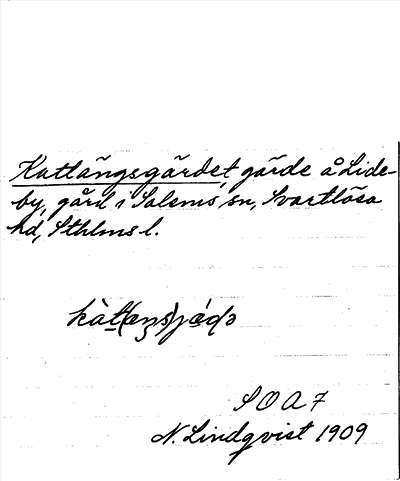 Kattängsgärdet, gärde å Lide-
by, gård i Salems sn, Svartlösa
hd, Sthlms l.
SOA 7
N. Lindqvist 1909